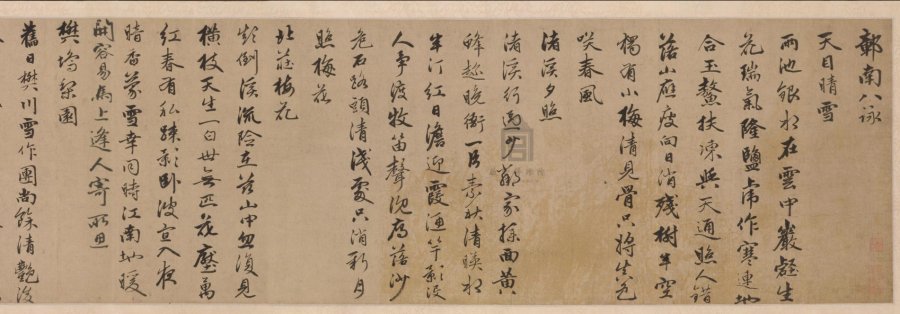 鄣南八詠
天目晴雪
兩池銀水在雲中巖壑生
花瑞氣隆鹽虎作寒連地
合玉鰲扶凍與天通照人錯
落山應瘦向日消殘樹半空
獨有小梅清見骨只將真色
笑春風
渚溪夕照
渚溪行過少薌家探面黃
蜂趁晚衙一片素秋清暎水
半汀紅日澹迎霞酒竿影沒
人爭渡牧笛聲沈鳥落沙
危石路頭清淺處只消新月
照梅花
北莊梅花
斜倒溪流險在茲山中忽復見
橫枝天生一白世無匹花壓萬
紅春有私疎影臥波宜入夜
暗香蒙雪幸同時江南地暖
開容易馬上逢人寄所思
樊塢梨園
舊日樊川雪作團尚餘清艷後